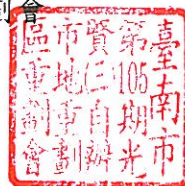 會
臺南市
第105期光
賢(三)自辦
市地重劃
區重劃會